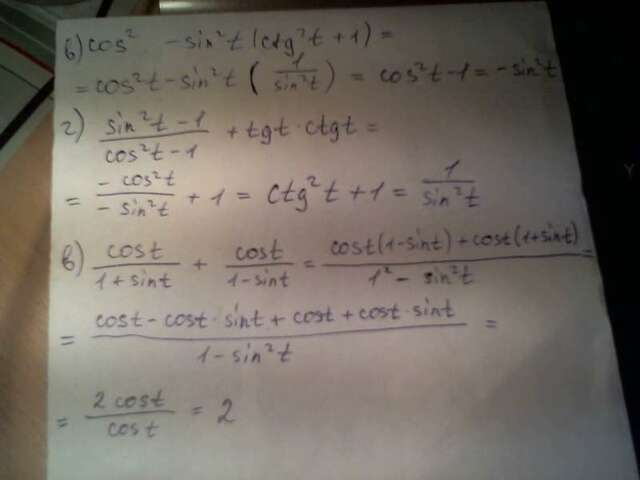 б) cos² - sin²t (ctg²t + 1) =
= cos²t - sin²t (1/sin²t) = cos²t - 1 = - sin²t
г) (sin²t - 1)/(cos²t - 1) + tgt · ctgt =
= (- cos²t)/(- sin²t) + 1 = ctg²t + 1 = 1/sin²t
в) cost/(1 + sint) + cost/(1 - sint) = (cost(1 - sint) + cost(1 + sint))/(1² - sin²t) =
= (cost - cost · sint + cost + cost · sint)/(1 - sin²t) =
= 2 cost/cost = 2